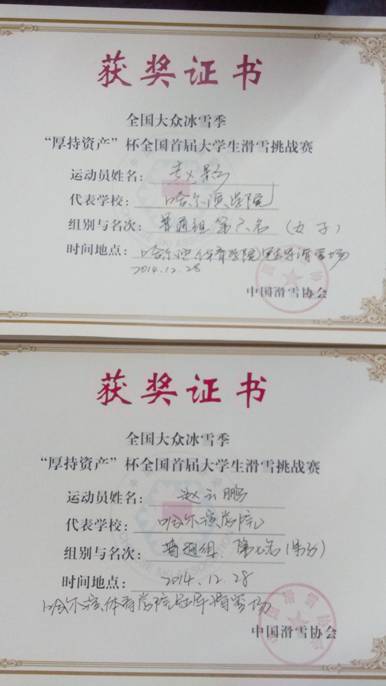 获奖证书
全国大众冰雪季
“厚持资产”杯全国首届大学生滑雪挑战赛
运动员姓名：
代表学校：哈尔滨学院
组别与名次：普通组 第六名（女子）
时间地点：哈尔滨体育学院冠军滑雪场
2014.12.28
中国滑雪协会
获奖证书
全国大众冰雪季
“厚持资产”杯全国首届大学生滑雪挑战赛
运动员姓名：赵云鹏
代表学校：哈尔滨学院
组别与名次：普通组 第七名（男子）
时间地点：2014.12.28
哈尔滨体育学院冠军滑雪场
中国滑雪协会